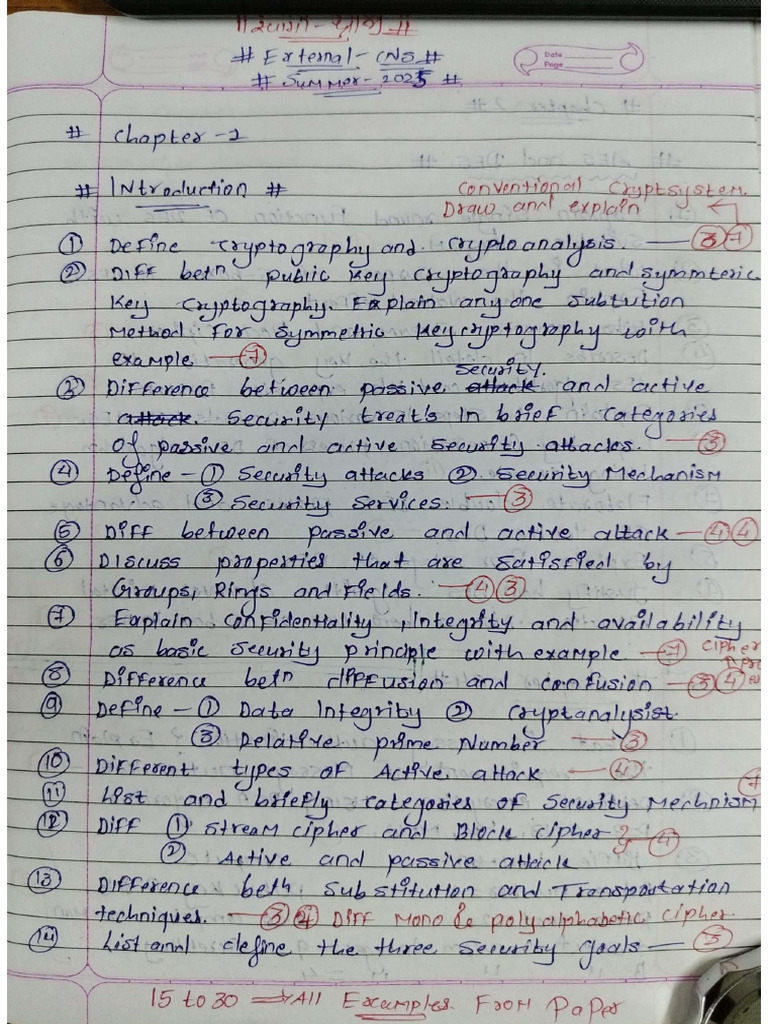 # External - CNS #
# Summer - 2025 #
Date
Page
# Chapter - 1
# INtroduction #
Conventional Cryptsystem.
Draw and explain
① Define Cryptography and Cryptoanalysis. — ③⑦
② Diff betn public key cryptography and symmteric
key cryptography. Explain any one Subtution
Method For Symmetric key cryptography with
example — ⑦
③ Difference between passive attack security. and active
attack. Security treat's In brief categories
of passive and active security attacks. — ③
④ Define - ① Security attacks ② Security Mechanism
③ Security Services. — ③
⑤ Diff between passive and active attack — ④④
⑥ Discuss properties that are satisfied by
Groups, Rings and Fields. — ④③
⑦ Explain confidentiality, integrity and availability
as basic security principle with example — ⑦
cipher
⑧ Difference betn diffusion and confusion — ③④
⑨ Define - ① Data Integrity ② Cryptanalysist.
③ Delative prime Number — ③
⑩ Different types of Active attack — ④
⑦
⑪ List and briefly categories of Security Mechnism
⑫ Diff ① Stream cipher and Block cipher } — ④
② Active and passive attack
⑬ Difference beth substitution and Transportation
techniques. — ③④ Diff Mono & polyalphabetic cipher.
⑭ List and define the three security goals — ③
15 to 30 ⟹ All Examples From Paper